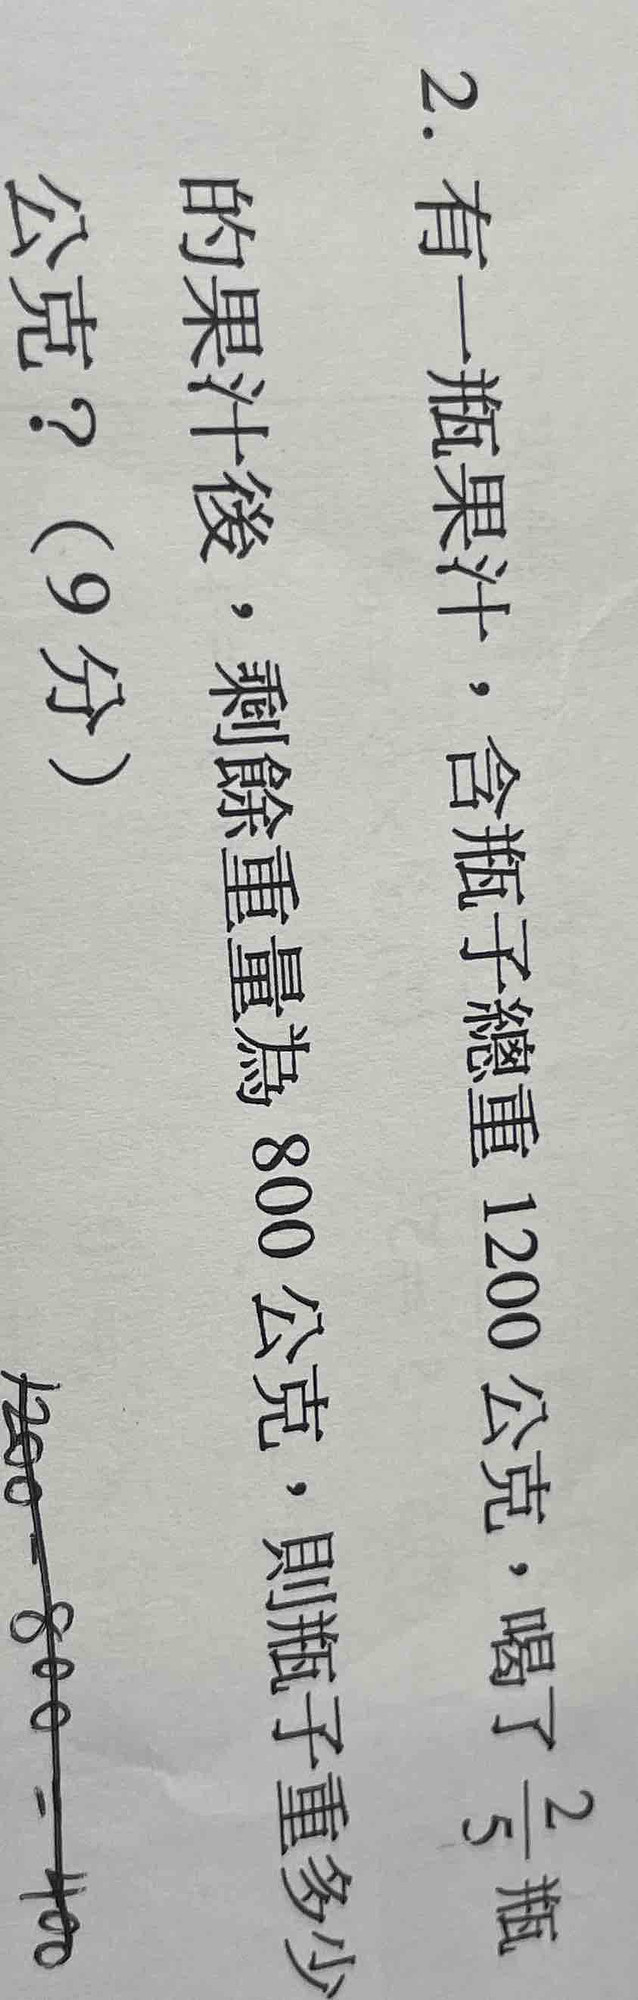 2. 有一瓶果汁，含瓶子總重 1200 公克，喝了 2/5 瓶
的果汁後，剩餘重量為 800 公克，則瓶子重多少
公克？（9 分）
1200 - 800 = 400